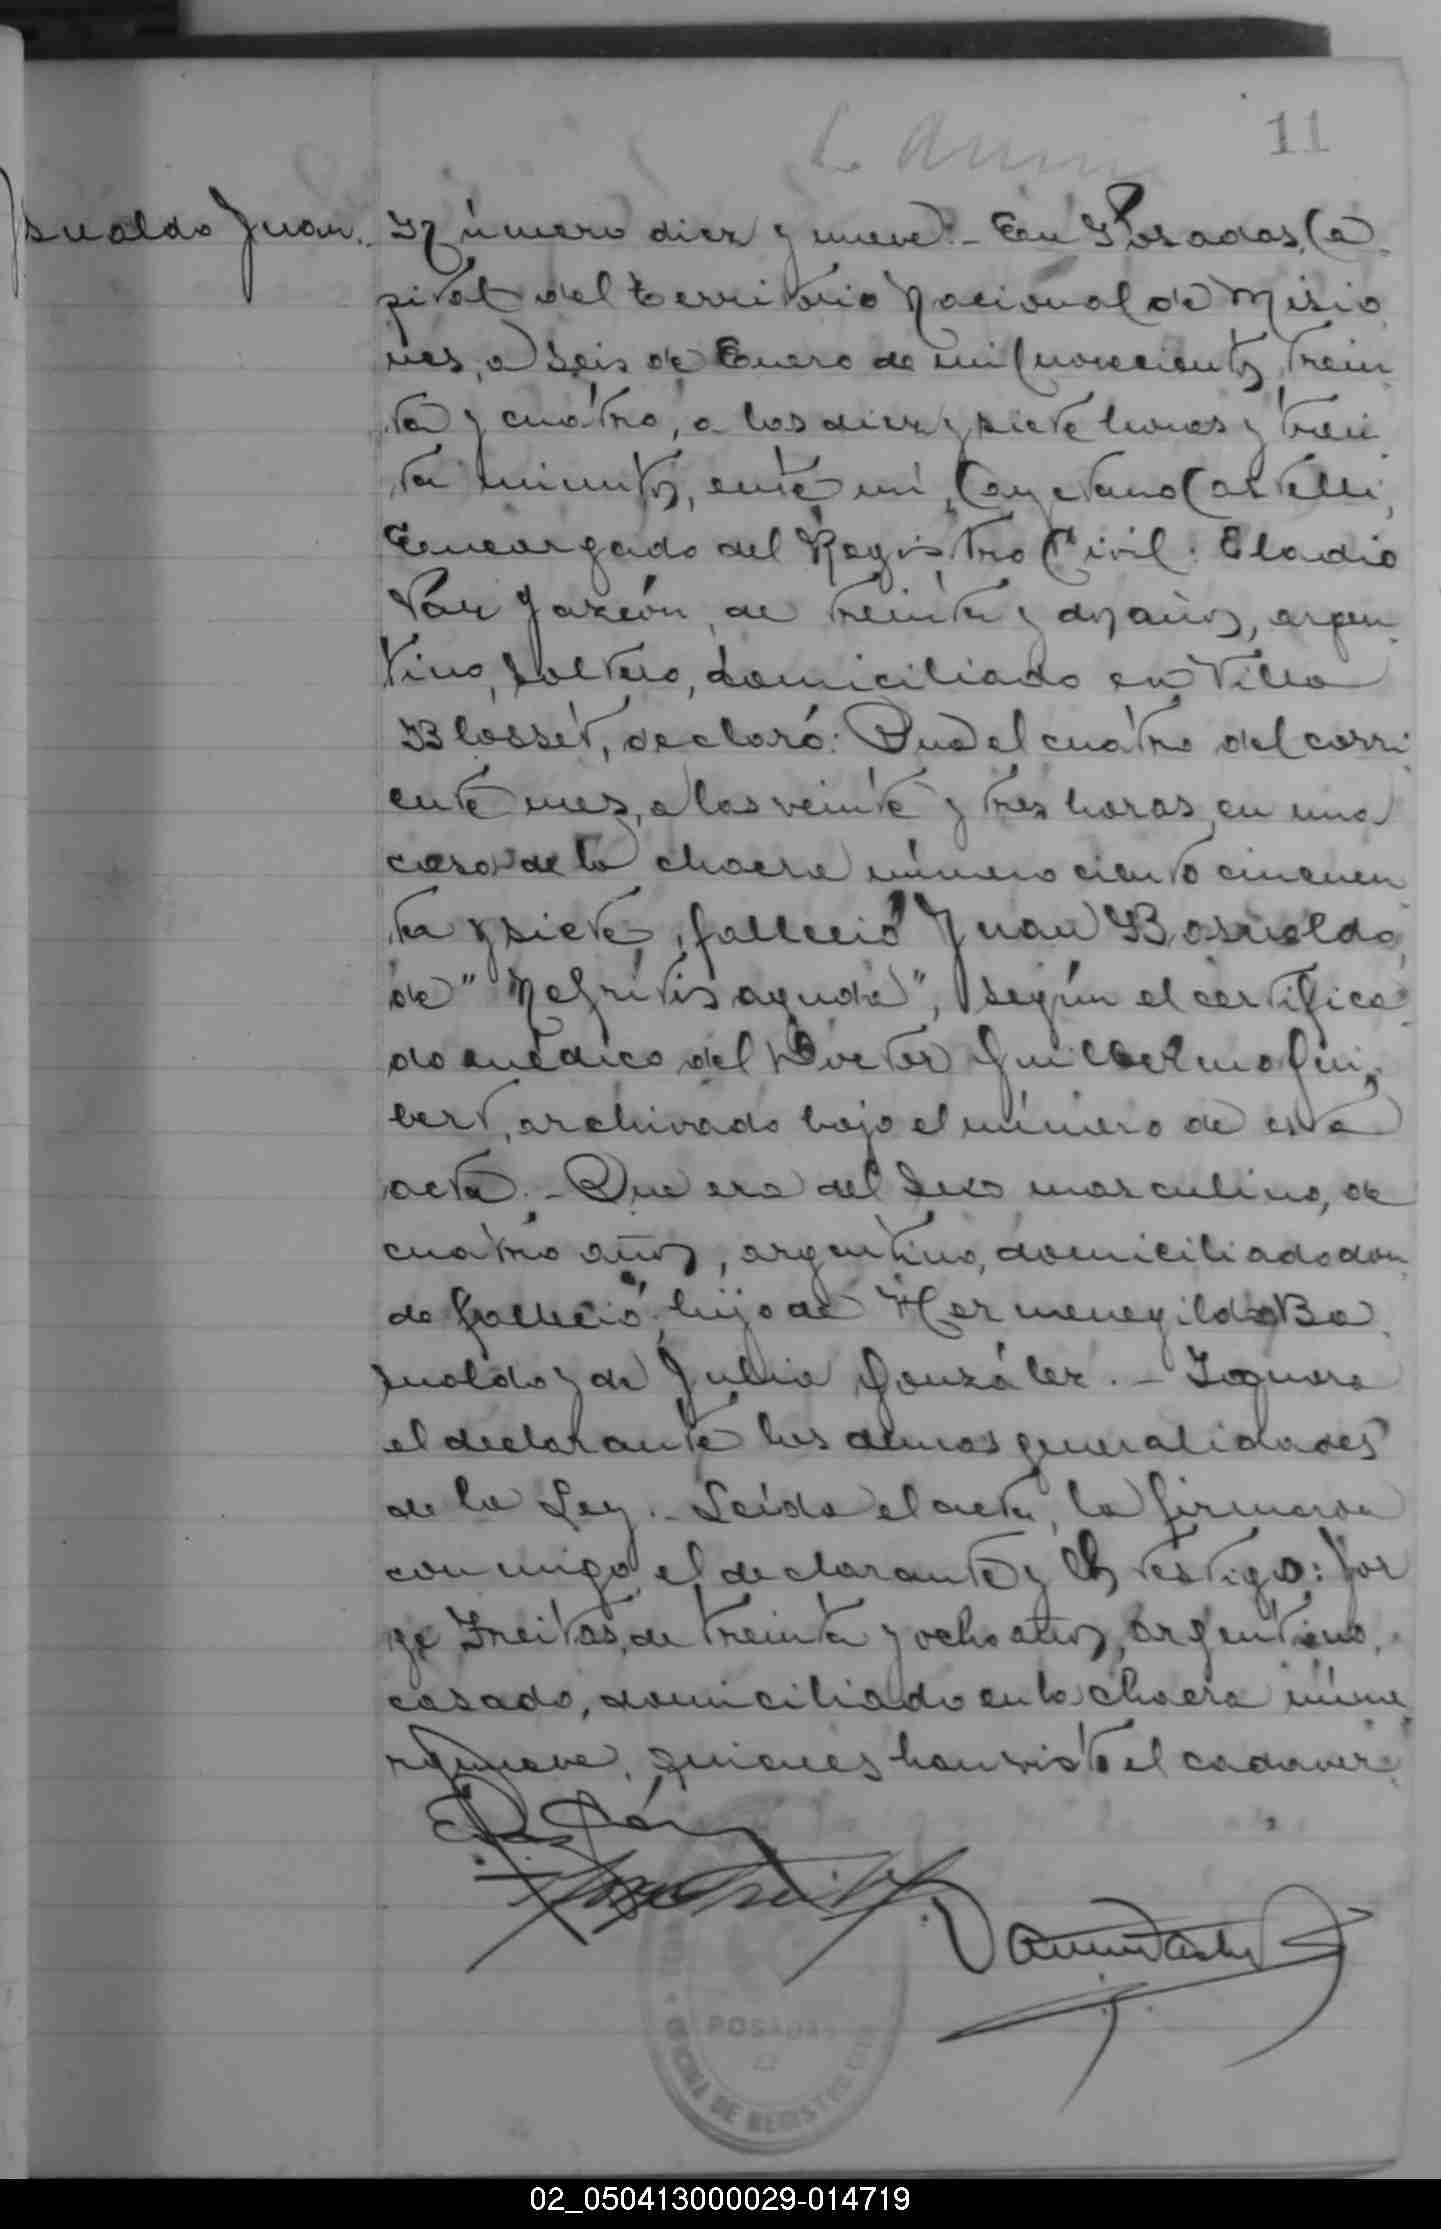 11
sualdo Juan.
Número diez y nueve.- En Posadas, Ca
pital del Territorio Nacional de Misio
nes, a seis de Enero de mil novecientos trein
ta y cuatro, a las diez y siete horas y trein
ta minutos, ante mi, Cayetano Castelli,
Encargado del Registro Civil: Eladio
de treinta y dos años, argen
tino, soltero, domiciliado en Villa
Blosset, declaró: Que el cuatro del corri
ente mes, a las veinte y tres horas, en una
casa de la chacra número ciento cincuen
ta y siete, falleció Juan Basualdo,
de "Nefritis aguda", según el certifica
do médico del Doctor Guillermo Gui
bert, archivado bajo el número de esta
acta.- Que era del sexo masculino, de
cuatro años, argentino, domiciliado don
de falleció, hijo de Hermenegildo Ba
sualdo y de Julia González.- Ignora
el declarante las demas generalidades
de la Ley.- Leída el acta, la firmaron
conmigo el declarante y el testigo: Jor
ge Freitas, de treinta y ocho años, argentino,
casado, domiciliado en la chacra núme
ro nueve, quienes han visto el cadaver.
POSADAS
OFICINA DE REGISTRO CIVIL
02_050413000029-014719